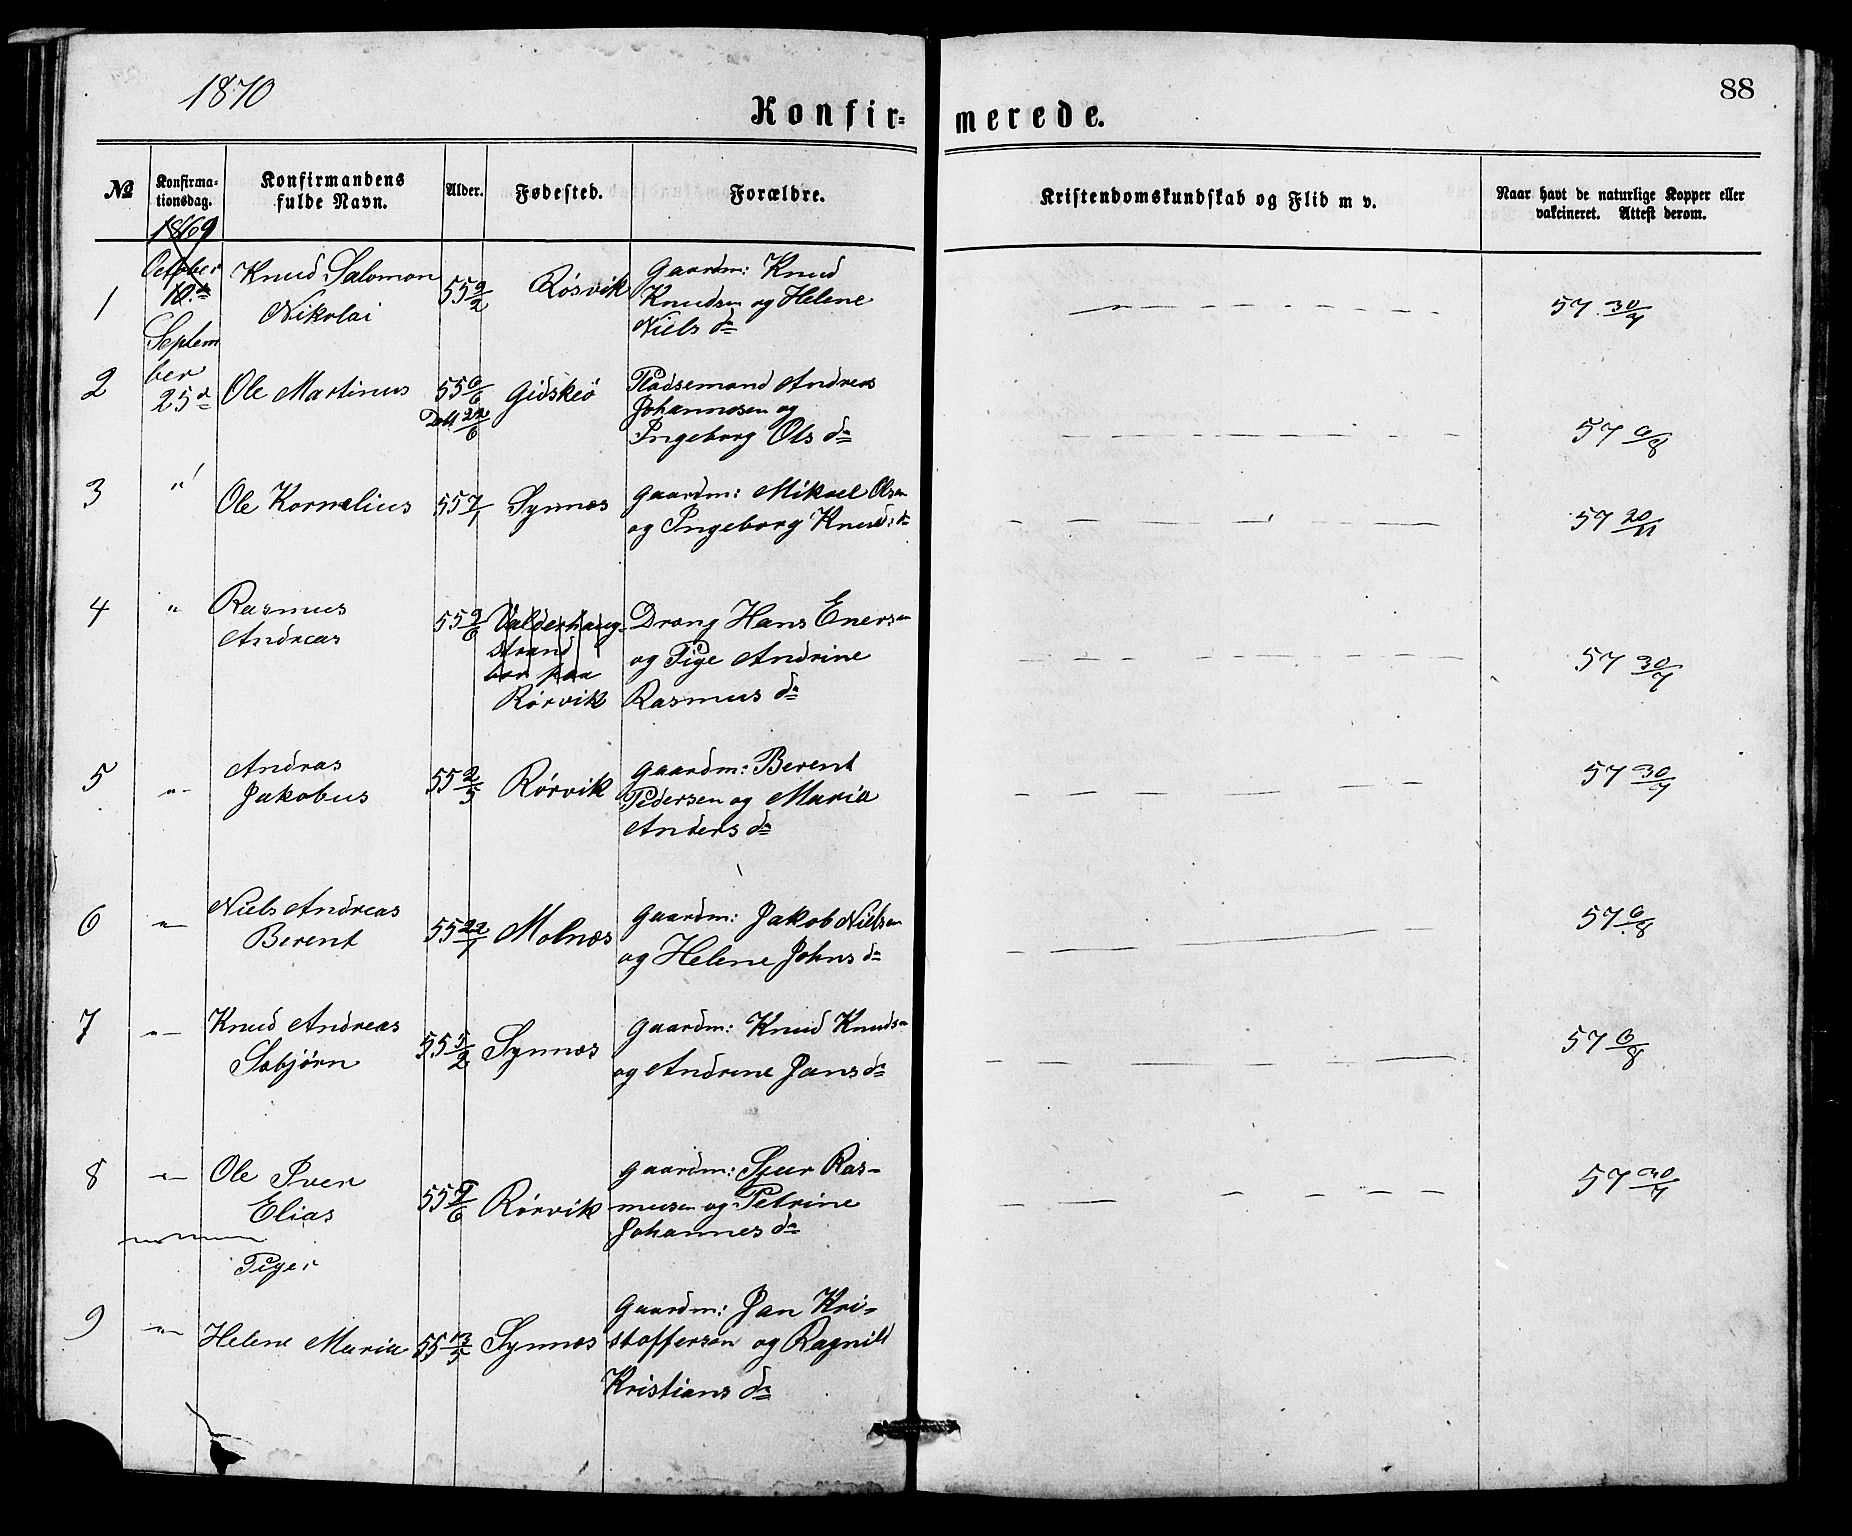 1870
88
Konfir=
merede.
№
Konfirma=
tionsdag.
Konfirmandens
fulde Navn.
Alder.
Fødested.
Forældre.
Kristendomskundskab og Flid m v.
Naar havt de naturlige Kopper eller
vakcineret. Attest derom.
1869
October
10de
1 Septem Knud Salomon
Nikolai
55 9/2 Røsvik Gaardm: Knud
Knudsen og Helene
Niels da
57 30/7
2 ber
25 d Ole Martinus 55 6/6 Gidskeö Pladsemand Andreas
Døbt 22/6
Johannesen og
Ingeborg Ols da
57 6/8
3 " Ole Kornelius 55 7/1 Synnes Gaardm: Mikael Olsen
og Ingeborg Knuds: da
57 20/11
4 " Rasmus
Andreas
55 9/6 Valderhaug- Drang Hans Enersen
strand
bor paa
Rørvik
og Pige Andrine
Rasmus da
57 30/7
5 -"- Andras
Jakobus
55 2/5 Rørvik Gaardm: Berent
Pedersen og Maria
Anders da
57 30/7
6 -"- Niels Andreas
Berent
55 22/1 Molnes Gaardm: Jakob Nielsen
og Helene Johns da
57 6/8
7 -"- Knud Andreas
Sobjörn
55 5/2 Synnes Gaardm: Knud Knudsen
og Andrine Jans da
57 6/8
8 -"- Ole Iver
Elias
55 9/6 Rørvik Gaardm: Sjur Ras-
musen og Petrine
Johannes da
57 30/7
Piger
9 -"- Helene Maria 55 13/5 Synnes Gaardm: Jan Kri-
stoffersen og Ragnild
Kristians da